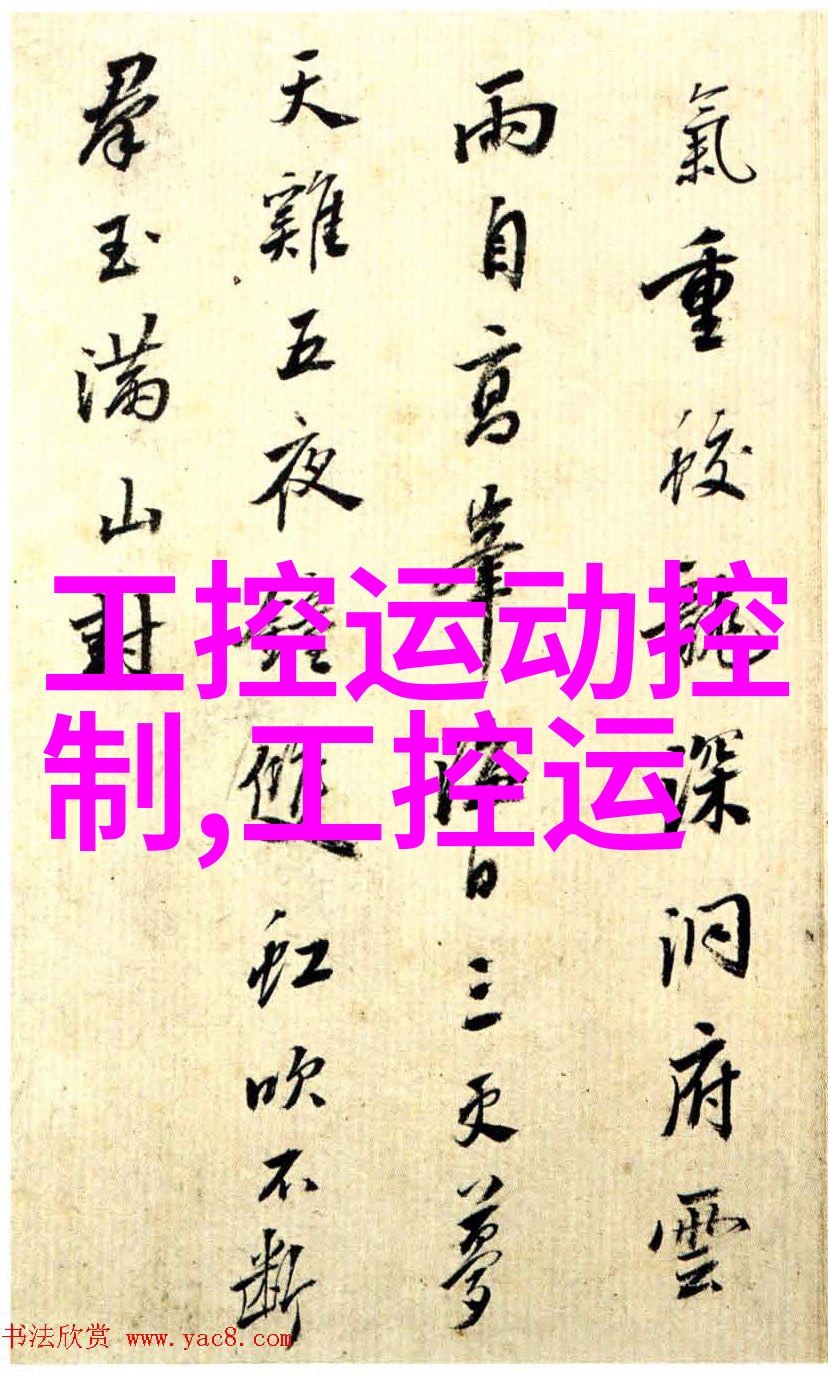 氣重蛟龍深洞府雲
雨自高峯海日三更夢
天雞五夜鐘虹吹不断
羣玉滿山封
工控运动控
制,工控运
书法欣赏 www.yac8.com